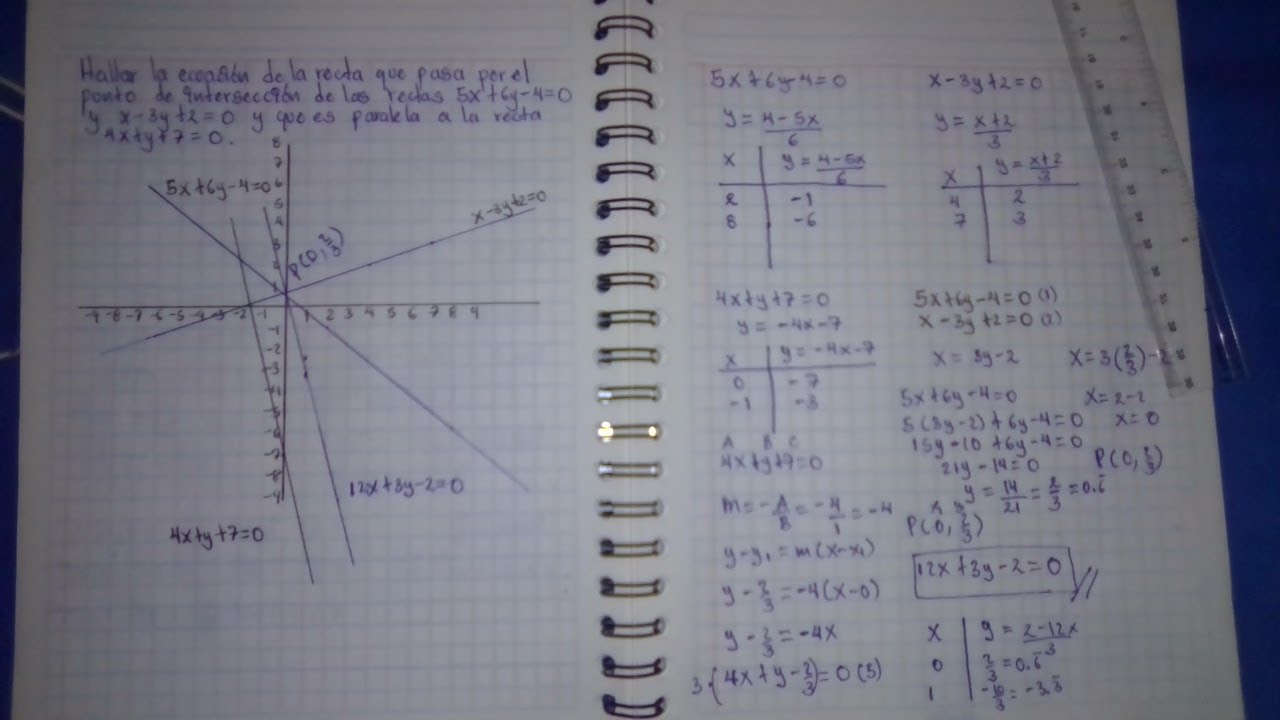 Hallar la ecuasión de la recta que pasa por el
punto de intersección de las rectas 5x+6y-4=0
y x-3y+2=0 y que es paralela a la recta
4x+y+7=0.
8
7
5x+6y-4=0 6
5
4
3
2
1
x-3y+2=0
P(0, 2/3)
-9 -8 -7 -6 -5 -4 -3 -2 -1 1 2 3 4 5 6 7 8 9
-1
-2
-3
-4
-5
-6
-7
-8
-9
12x+3y-2=0
4x+y+7=0
5x+6y-4=0
y = (4-5x)/6
x | y = (4-5x)/6
2 | -1
8 | -6
x-3y+2=0
y = (x+2)/3
x | y = (x+2)/3
4 | 2
7 | 3
4x+y+7=0
y = -4x-7
x | y = -4x-7
0 | -7
-1 | -3
A B C
4x+y+7=0
m = -A/B = -4/1 = -4
y-y₁ = m(x-x₁)
y - 2/3 = -4(x-0)
y - 2/3 = -4x
3·(4x+y-2/3) = 0 (3)
5x+6y-4=0 (1)
x-3y+2=0 (2)
x = 3y-2
5x+6y-4=0
5(3y-2)+6y-4=0
15y-10+6y-4=0
21y-14=0
y = 14/21 = 2/3 = 0.6̄
x = 3(2/3)-2
x = 2-2
x = 0
P(0, 2/3)
P(0, 2/3)
12x+3y-2=0
x | y = (2-12x)/3
0 | 2/3 = 0.6̄
1 | -10/3 = -3.3̄